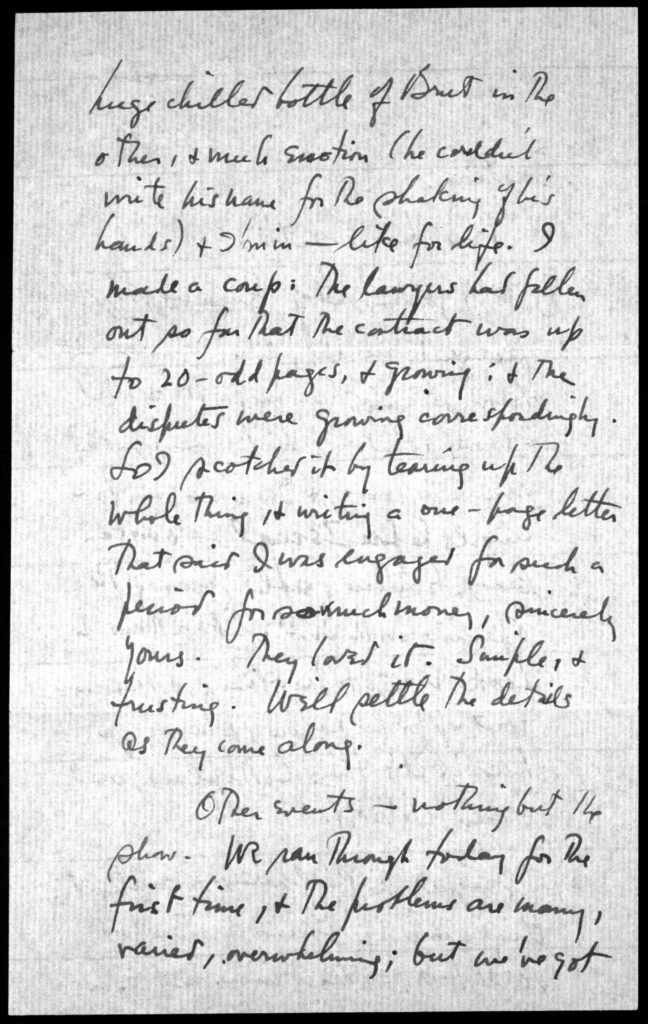 huge chilled bottle of Brut in the
other, & much emotion (he couldn't
write his name for the shaking of his
hands) & I'm in — like for life. I
made a coup: The lawyers had fallen
out so far that the contract was up
to 20-odd pages, & growing; & the
disputes were growing correspondingly.
So I scotched it by tearing up the
whole thing, & writing a one-page letter
that said I was engaged for such a
period for so much money, sincerely
yours. They loved it. Simple, &
trusting. We'll settle the details
as they come along.
Other events — nothing but the
show. We ran through today for the
first time, & the problems are many,
varied, overwhelming; but we've got